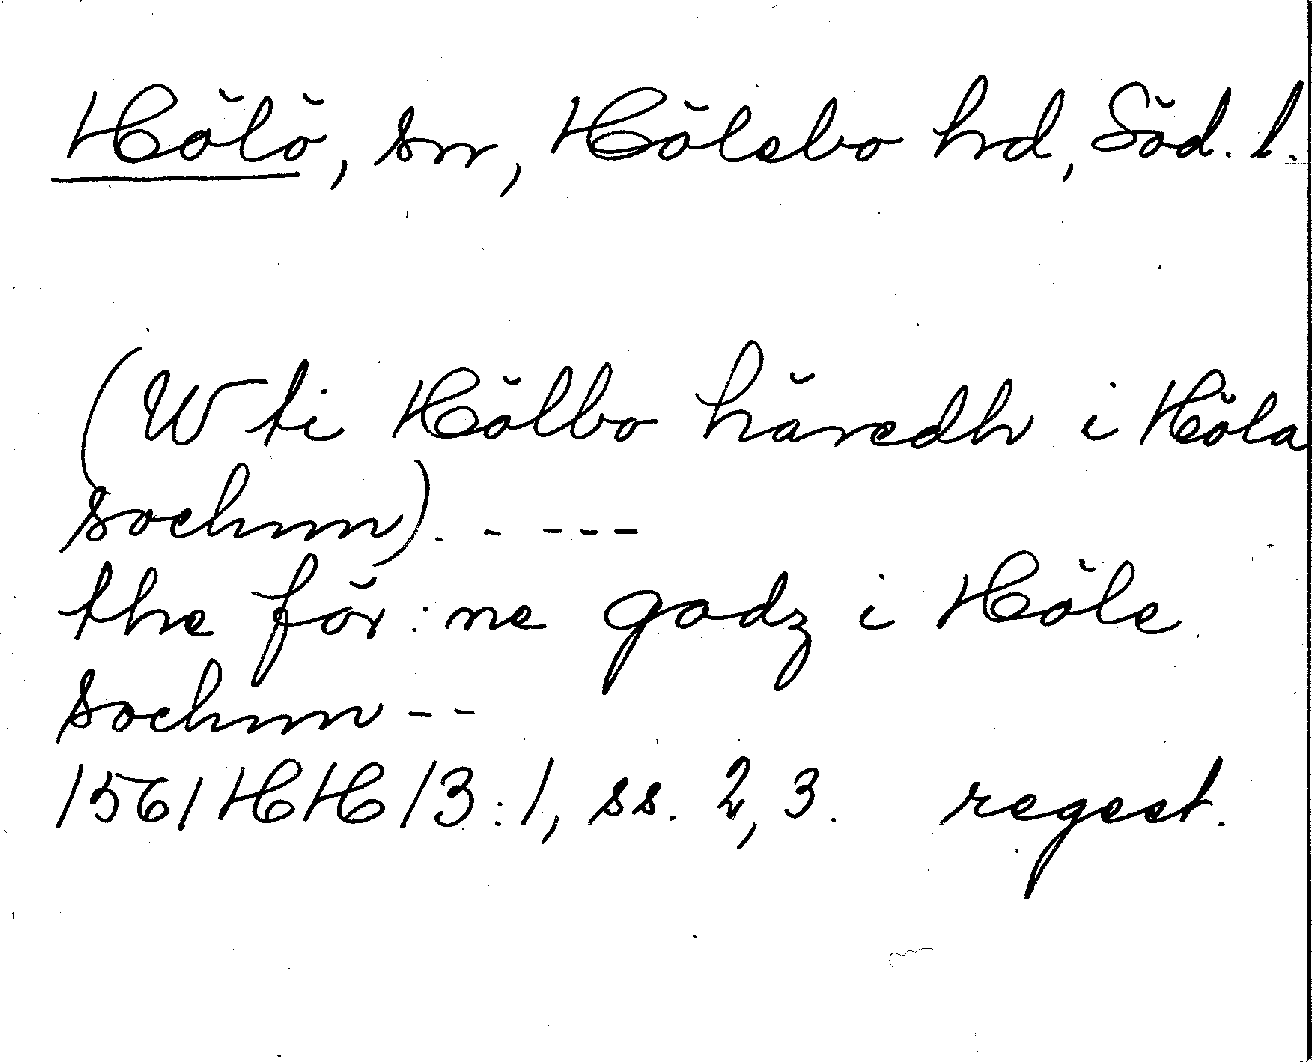 Hölö, sn, Hölebo hd, Söd. l.
(W ti Hölbo häredh i Höla
sochnn). - ---
the för:ne godz i Höle
sochnn --
1561 HH 13:1, ss. 2, 3. regest.